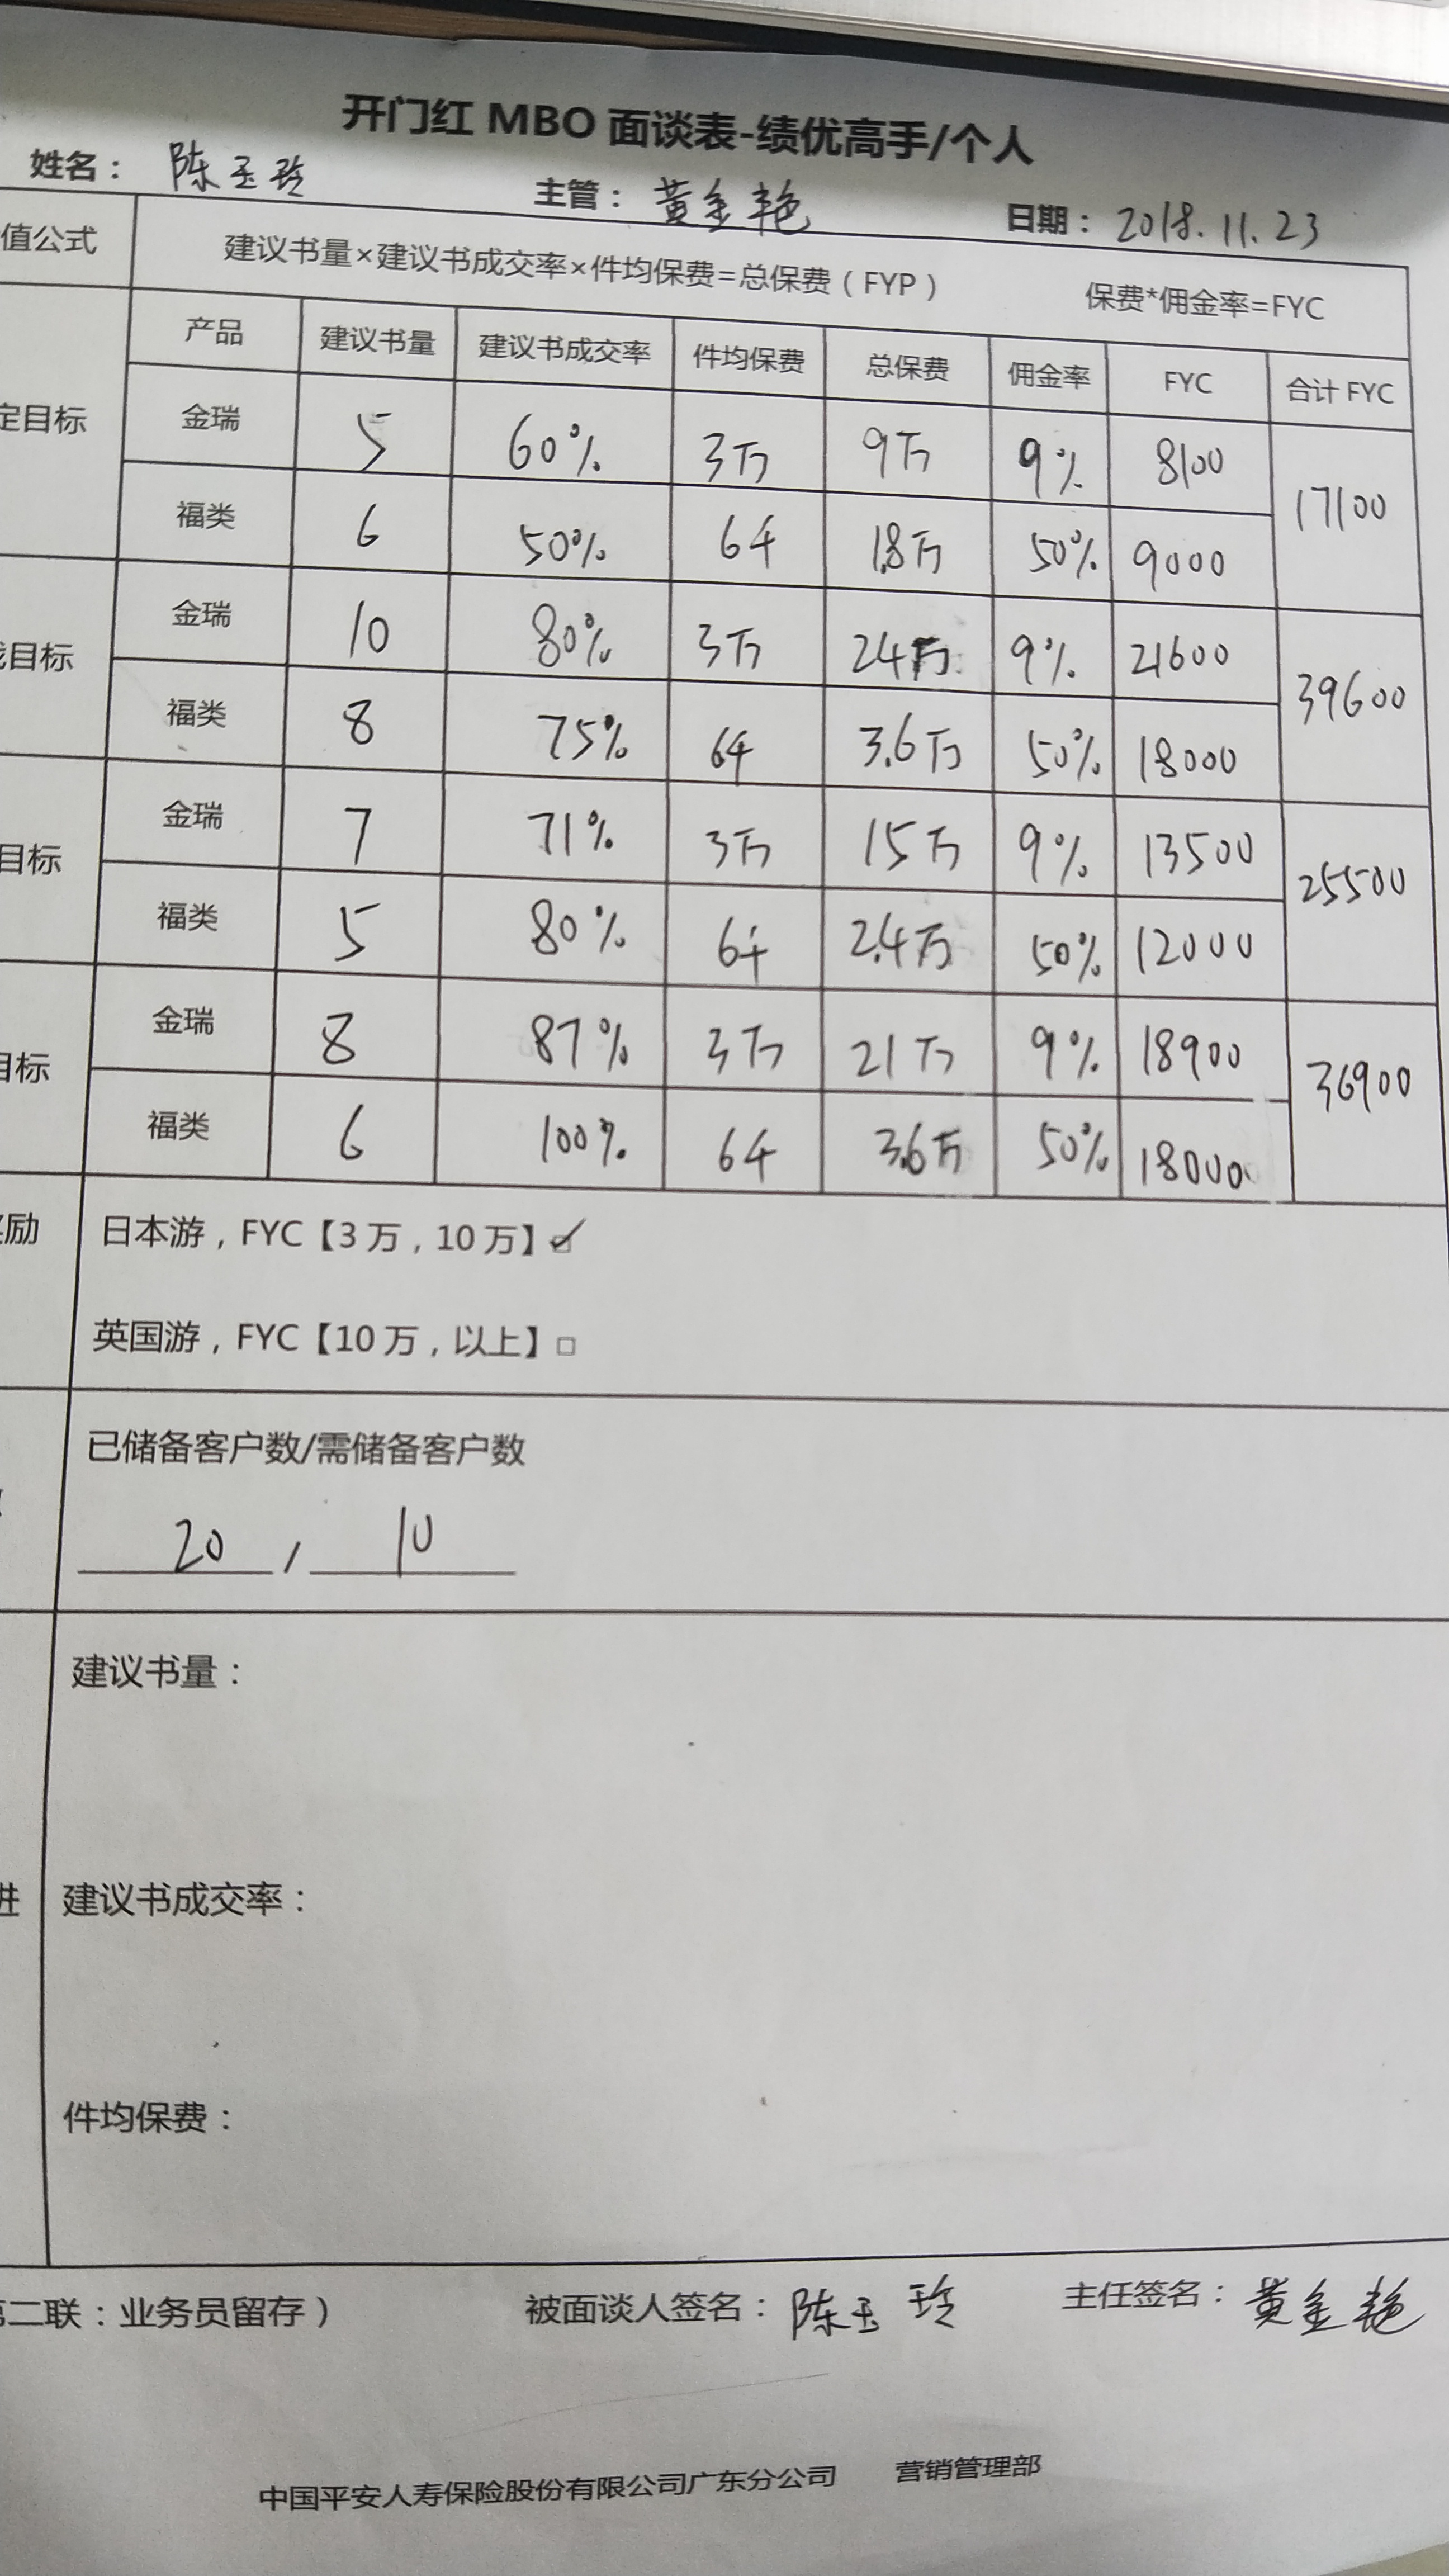 开门红 MBO 面谈表-绩优高手/个人
姓名： 陈玉玲 主管： 黄金艳 日期： 2018.11.23
值公式 建议书量×建议书成交率×件均保费=总保费（FYP） 保费*佣金率=FYC
产品 建议书量 建议书成交率 件均保费 总保费 佣金率 FYC 合计 FYC
定目标 金瑞 5 60% 3万 9万 9% 8100 17100
福类 6 50% 6千 1.8万 50% 9000
目标 金瑞 10 80% 3万 24万 9% 21600 39600
福类 8 75% 6千 3.6万 50% 18000
目标 金瑞 7 71% 3万 15万 9% 13500 25500
福类 5 80% 6千 2.4万 50% 12000
目标 金瑞 8 87% 3万 21万 9% 18900 36900
福类 6 100% 6千 3.6万 50% 18000
励 日本游，FYC【3 万，10 万】☑
英国游，FYC【10 万，以上】□
已储备客户数/需储备客户数
20 / 10
建议书量：
进 建议书成交率：
件均保费：
第二联：业务员留存） 被面谈人签名：陈玉玲 主任签名：黄金艳
中国平安人寿保险股份有限公司广东分公司 营销管理部